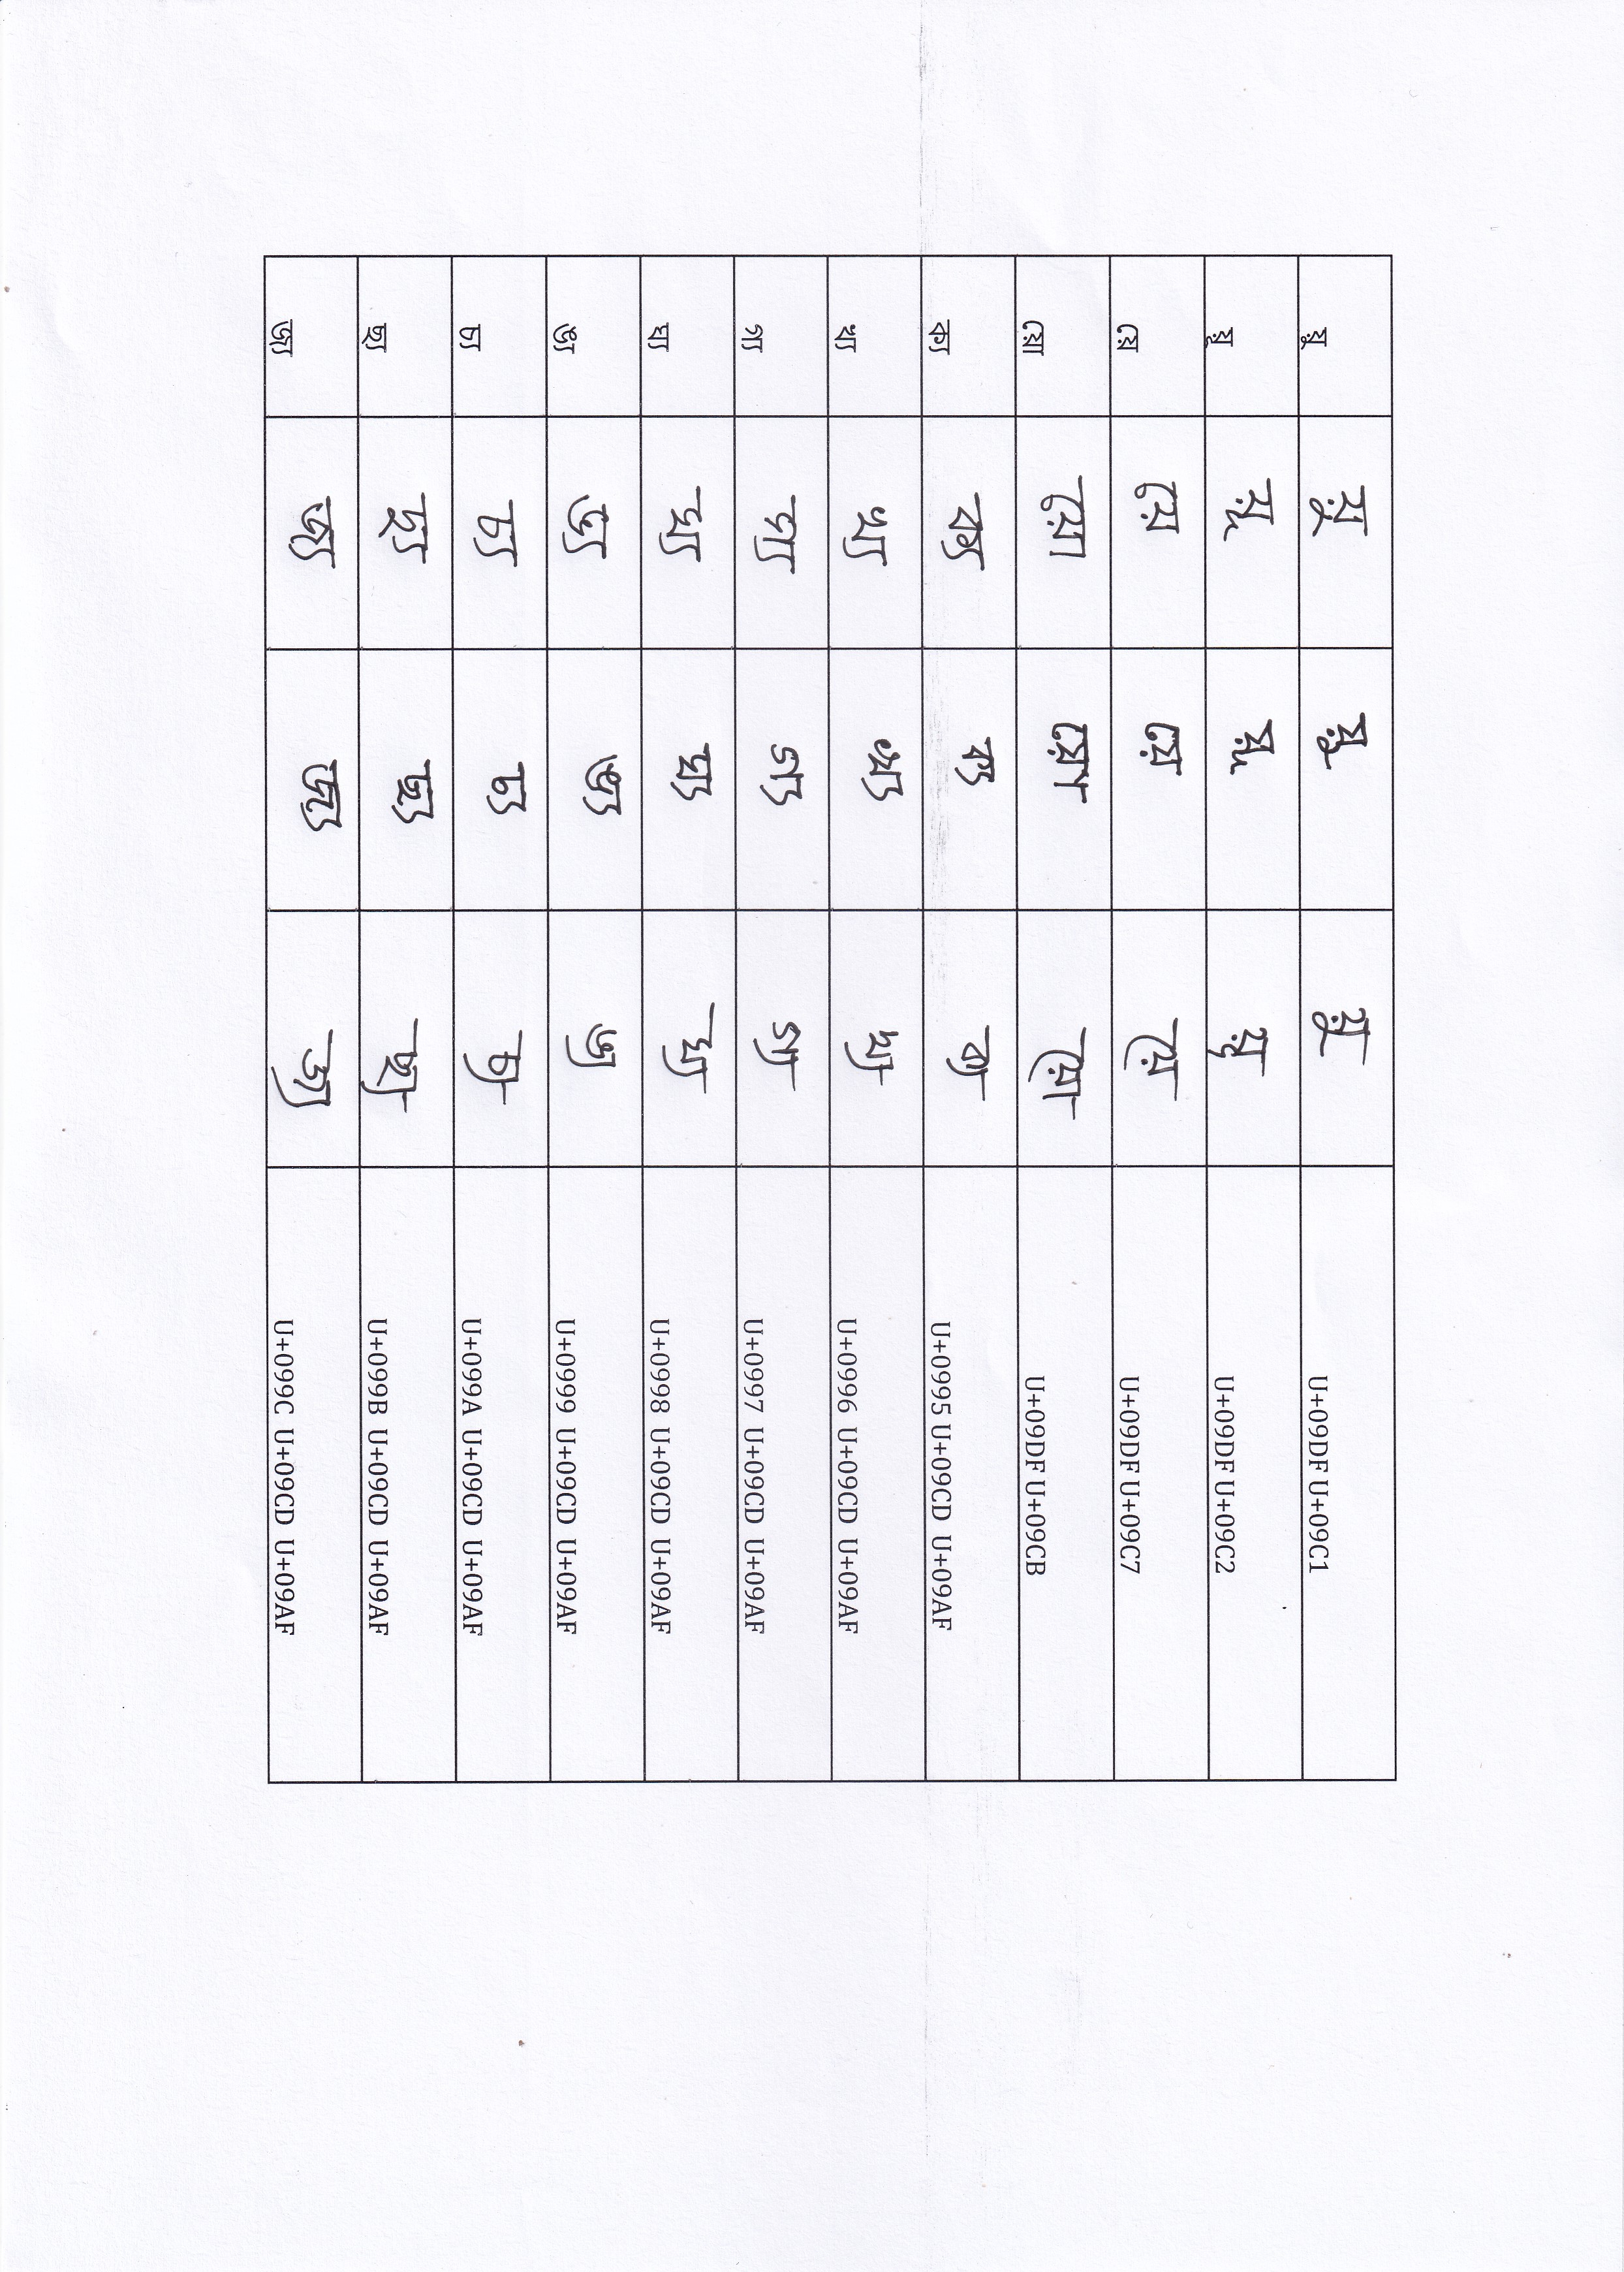 য়ু য়ু য়ু য়ু U+09DF U+09C1
য়ূ য়ূ য়ূ য়ূ U+09DF U+09C2
য়ে য়ে য়ে য়ে U+09DF U+09C7
য়ো য়ো য়ো য়ো U+09DF U+09CB
ক্য ক্য ক্য ক্য U+0995 U+09CD U+09AF
খ্য খ্য খ্য খ্য U+0996 U+09CD U+09AF
গ্য গ্য গ্য গ্য U+0997 U+09CD U+09AF
ঘ্য ঘ্য ঘ্য ঘ্য U+0998 U+09CD U+09AF
ঙ্য ঙ্য ঙ্য ঙ্য U+0999 U+09CD U+09AF
চ্য চ্য চ্য চ্য U+099A U+09CD U+09AF
ছ্য ছ্য ছ্য ছ্য U+099B U+09CD U+09AF
জ্য জ্য জ্য জ্য U+099C U+09CD U+09AF